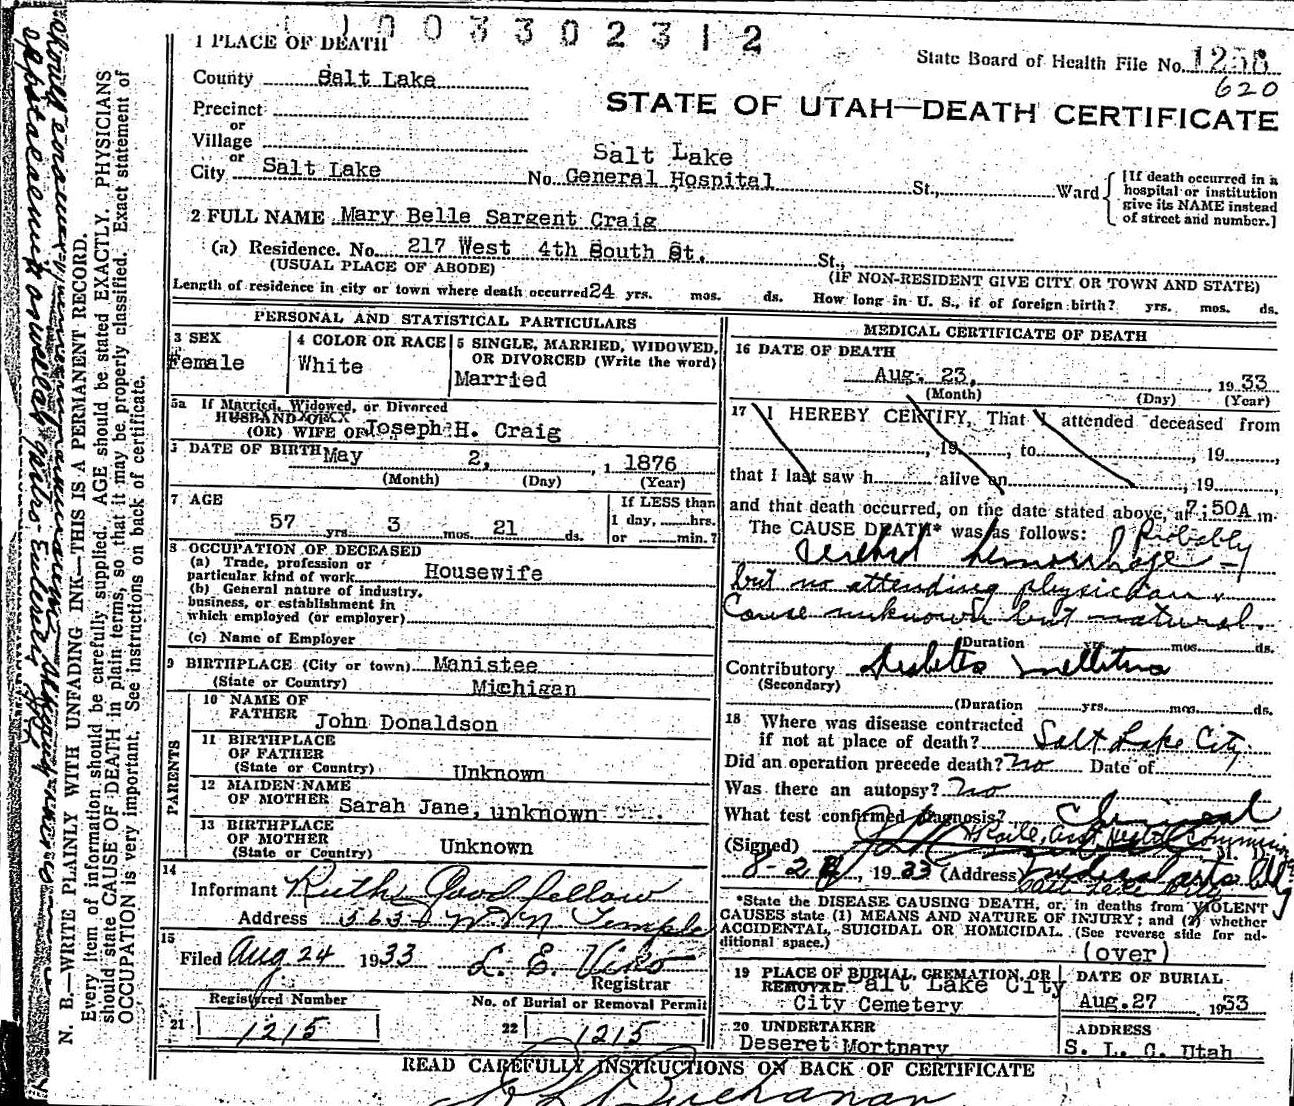 1003302312
1 PLACE OF DEATH
State Board of Health File No. 1258
620
County Salt Lake
STATE OF UTAH—DEATH CERTIFICATE
Precinct
or
Village
or
City Salt Lake No. Salt Lake General Hospital St., Ward
[If death occurred in a
hospital or institution
give its NAME instead
of street and number.]
2 FULL NAME Mary Belle Sargent Craig
(a) Residence. No. 217 West 4th South St. St.,
(USUAL PLACE OF ABODE) (IF NON-RESIDENT GIVE CITY OR TOWN AND STATE)
Length of residence in city or town where death occurred 24 yrs. mos. ds. How long in U. S., if of foreign birth? yrs. mos. ds.
PERSONAL AND STATISTICAL PARTICULARS
3 SEX
Female
4 COLOR OR RACE
White
5 SINGLE, MARRIED, WIDOWED,
OR DIVORCED (Write the word)
Married
5a If Married, Widowed, or Divorced
HUSBAND OF
(OR) WIFE OF Joseph H. Craig
6 DATE OF BIRTH May 2, , 1 1876
(Month) (Day) (Year)
7 AGE
57 yrs. 3 mos. 21 ds.
If LESS than
1 day, hrs.
or min.?
8 OCCUPATION OF DECEASED
(a) Trade, profession or
particular kind of work Housewife
(b) General nature of industry,
business, or establishment in
which employed (or employer)
(c) Name of Employer
9 BIRTHPLACE (City or town) Manistee
(State or Country) Michigan
PARENTS
10 NAME OF
FATHER John Donaldson
11 BIRTHPLACE
OF FATHER
(State or Country) Unknown
12 MAIDEN NAME
OF MOTHER Sarah Jane, unknown
13 BIRTHPLACE
OF MOTHER
(State or Country) Unknown
14
Informant Ruth Goodfellow
Address 563 W No Temple
15
Filed Aug 24 1933 L. E. Viko
Registrar
Registered Number
21 1215
No. of Burial or Removal Permit
22 1215
MEDICAL CERTIFICATE OF DEATH
16 DATE OF DEATH
Aug. 23, 1933
(Month) (Day) (Year)
17 I HEREBY CERTIFY, That I attended deceased from
, 19 , to , 19 ,
that I last saw h alive on , 19 ,
and that death occurred, on the date stated above, at 7:50A m.
The CAUSE DEATH* was as follows: Probably
cerebral hemorrhage
but no attending physician
Cause unknown but natural.
(Duration yrs. mos. ds.
Contributory Diabetes mellitus
(Secondary)
(Duration yrs. mos. ds.
18 Where was disease contracted
if not at place of death? Salt Lake City
Did an operation precede death? No Date of
Was there an autopsy? No
What test confirmed diagnosis? Clinical
(Signed)
8-24, 1933 (Address) Medical Arts Bldg
Salt Lake City
*State the DISEASE CAUSING DEATH, or, in deaths from VIOLENT
CAUSES state (1) MEANS AND NATURE OF INJURY; and (2) whether
ACCIDENTAL, SUICIDAL OR HOMICIDAL. (See reverse side for ad-
ditional space.)
(over)
19 PLACE OF BURIAL, CREMATION, OR
REMOVAL Salt Lake City
City Cemetery
DATE OF BURIAL
Aug. 27 1933
20 UNDERTAKER
Deseret Mortnary
ADDRESS
S. L. C. Utah
READ CAREFULLY INSTRUCTIONS ON BACK OF CERTIFICATE
Buchanan
N. B.—WRITE PLAINLY WITH UNFADING INK—THIS IS A PERMANENT RECORD.
Every item of information should be carefully supplied. AGE should be stated EXACTLY. PHYSICIANS
should state CAUSE OF DEATH in plain terms, so that it may be properly classified. Exact statement of
OCCUPATION is very important. See instructions on back of certificate.